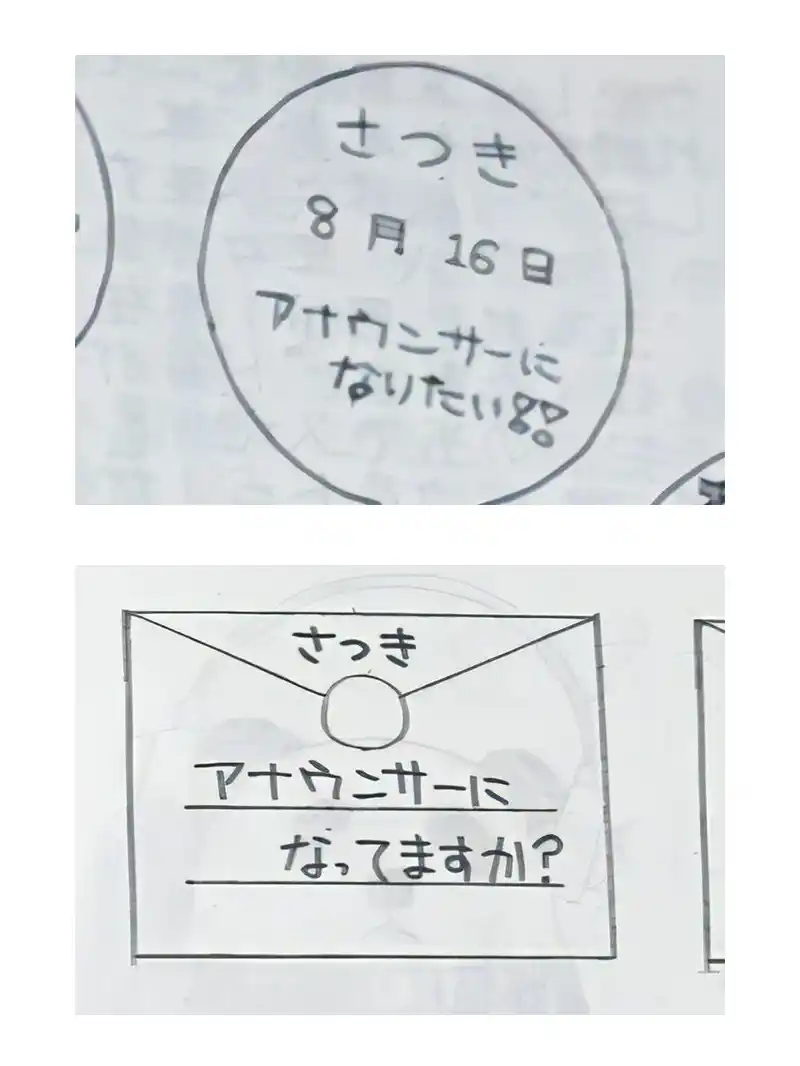 さつき
8月16日
アナウンサーに
なりたい!!
さつき
アナウンサーに
なってますか?